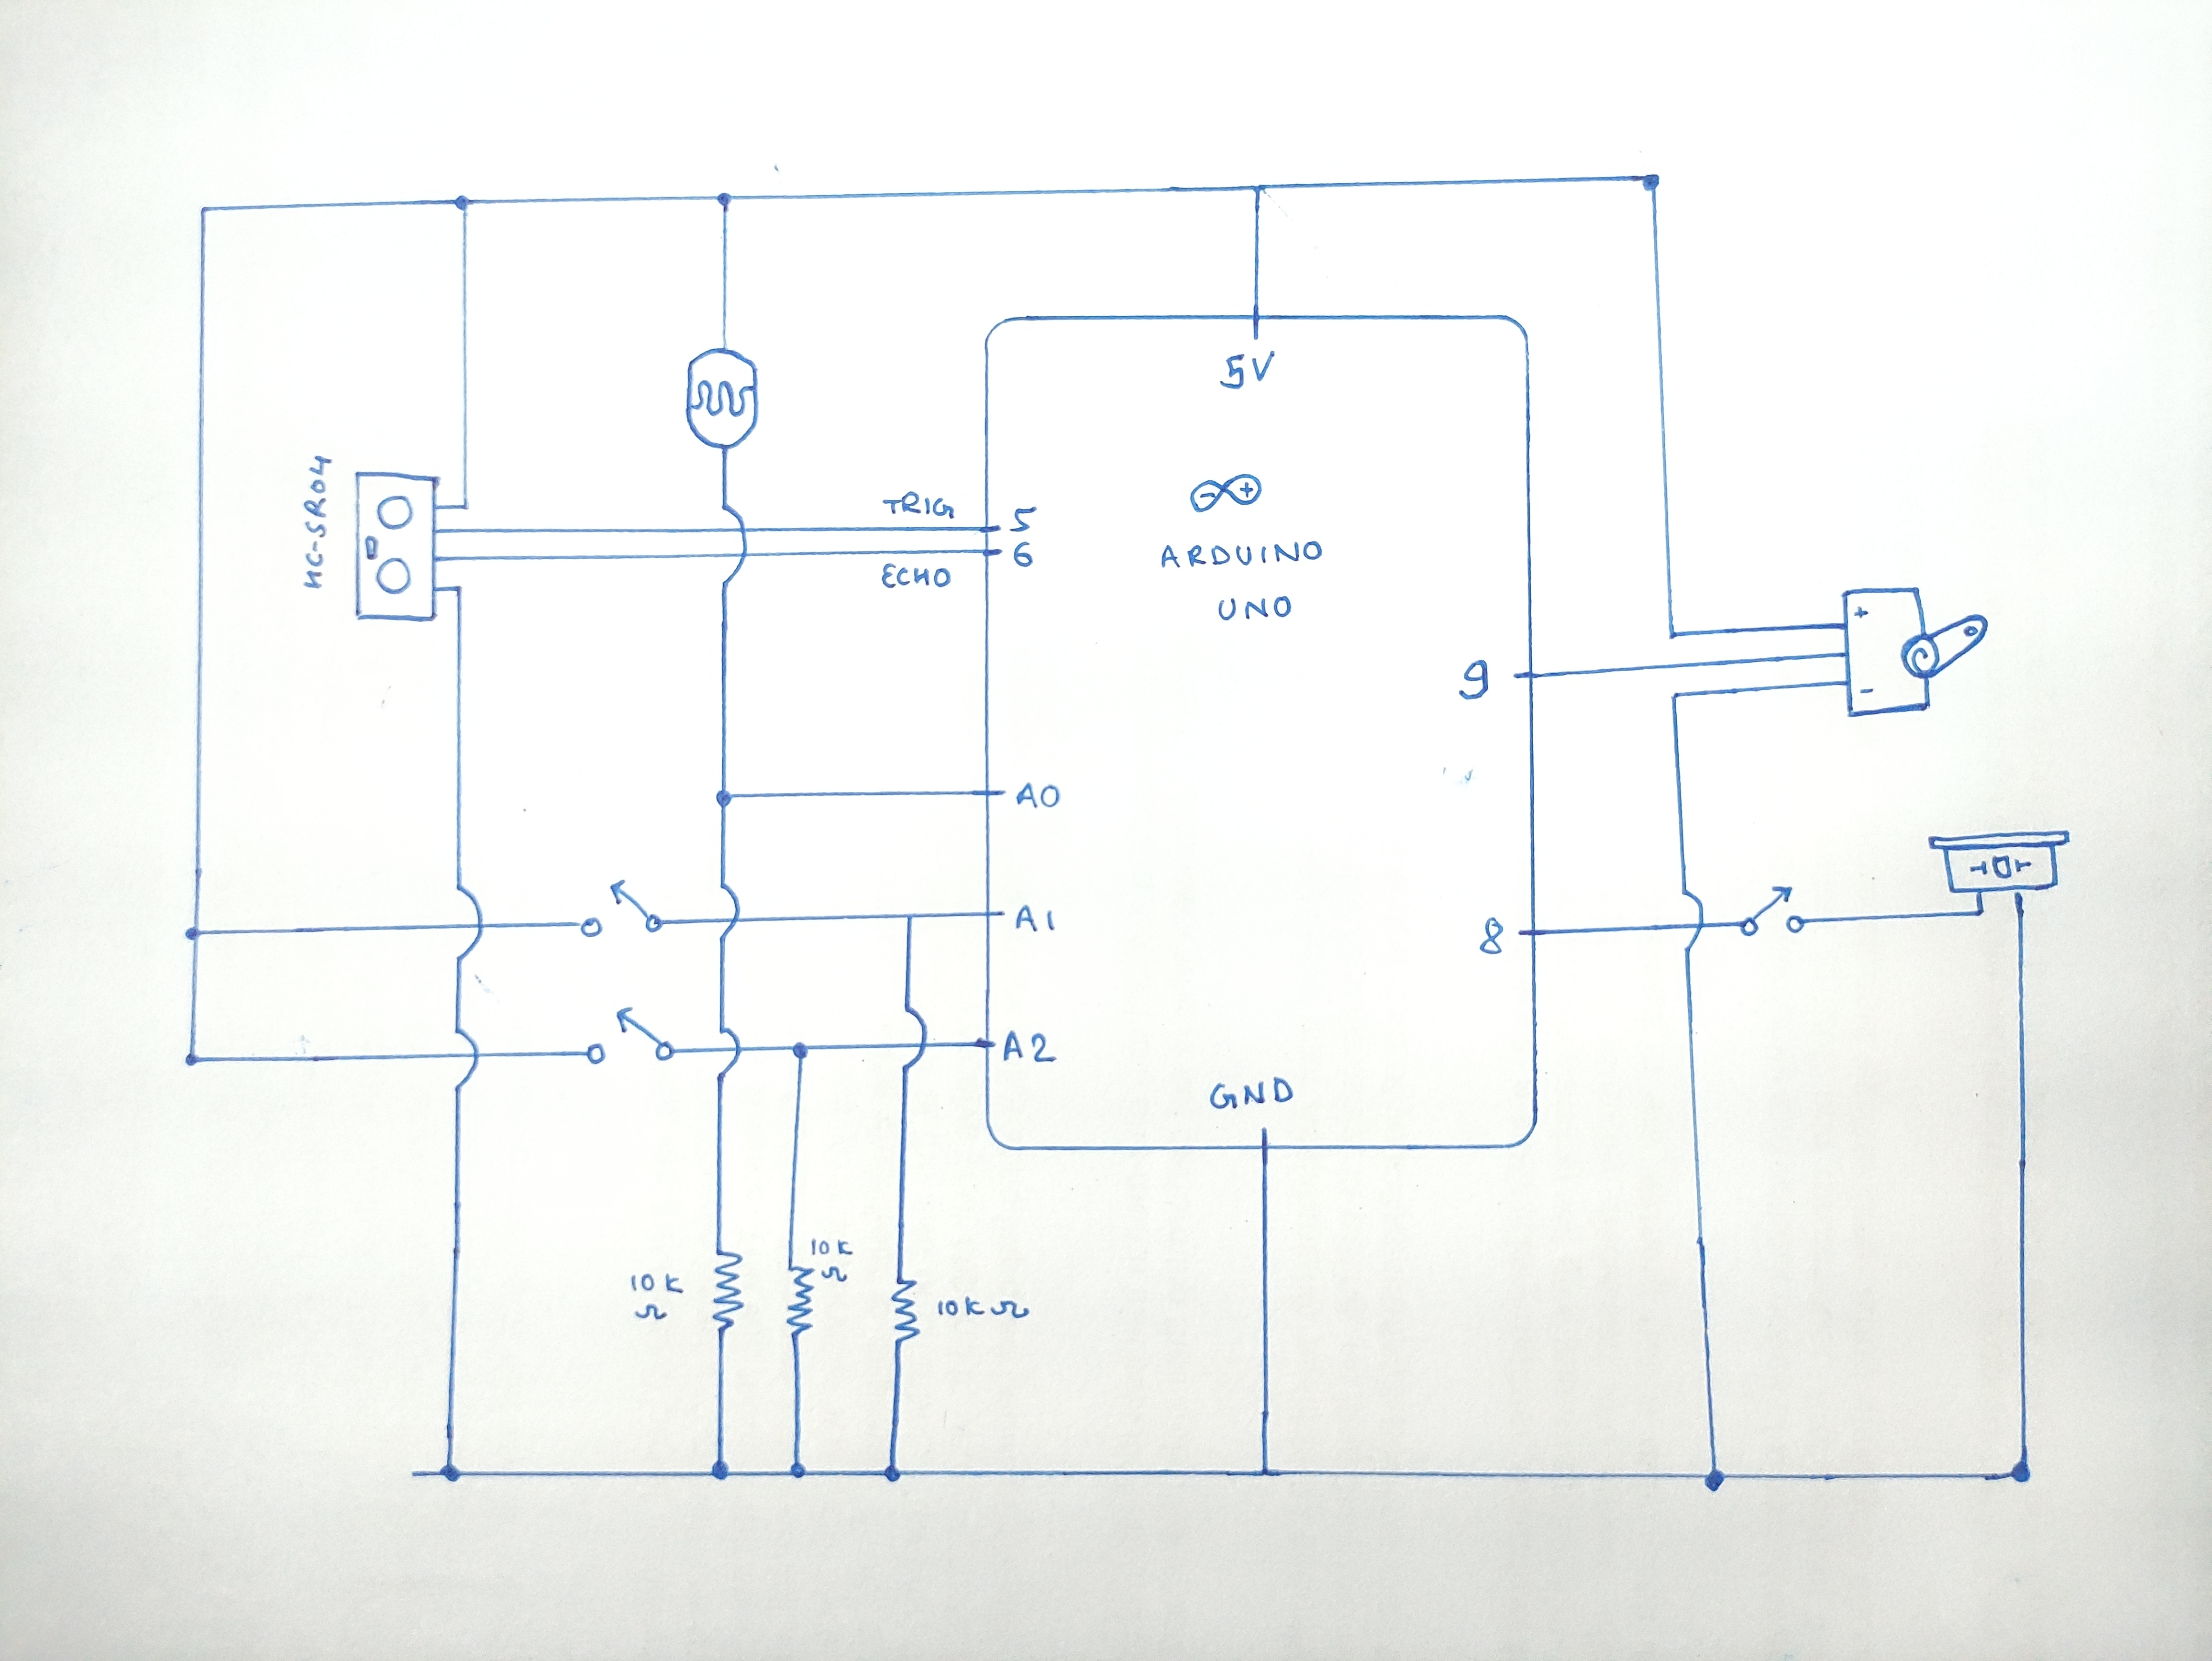 5V
HC-SR04
TRIG
5
6
ECHO
ARDUINO
UNO
+
-
9
A0
A1
8
A2
GND
10K
Ω
10K
Ω
10KΩ